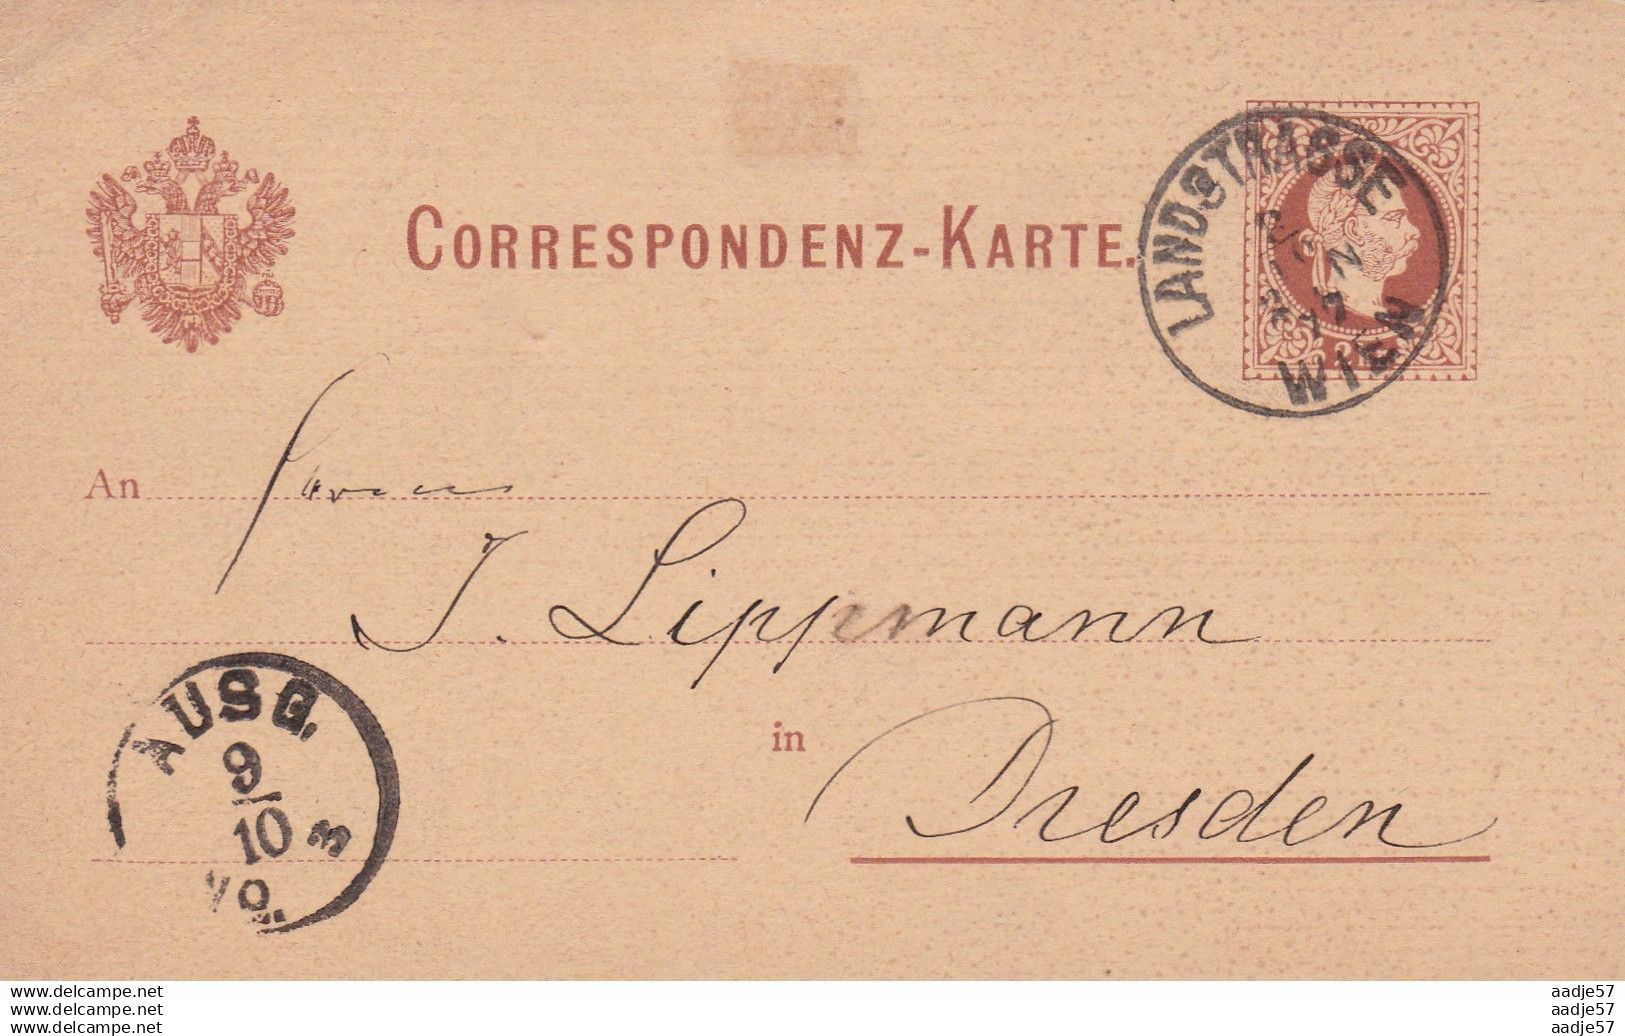 CORRESPONDENZ-KARTE.
LANDSTRASSE
WIEN
An
J. Lippmann
in
Dresden
AUSG.
9/10
3
www.delcampe.net aadje57
www.delcampe.net aadje57
www.delcampe.net aadje57